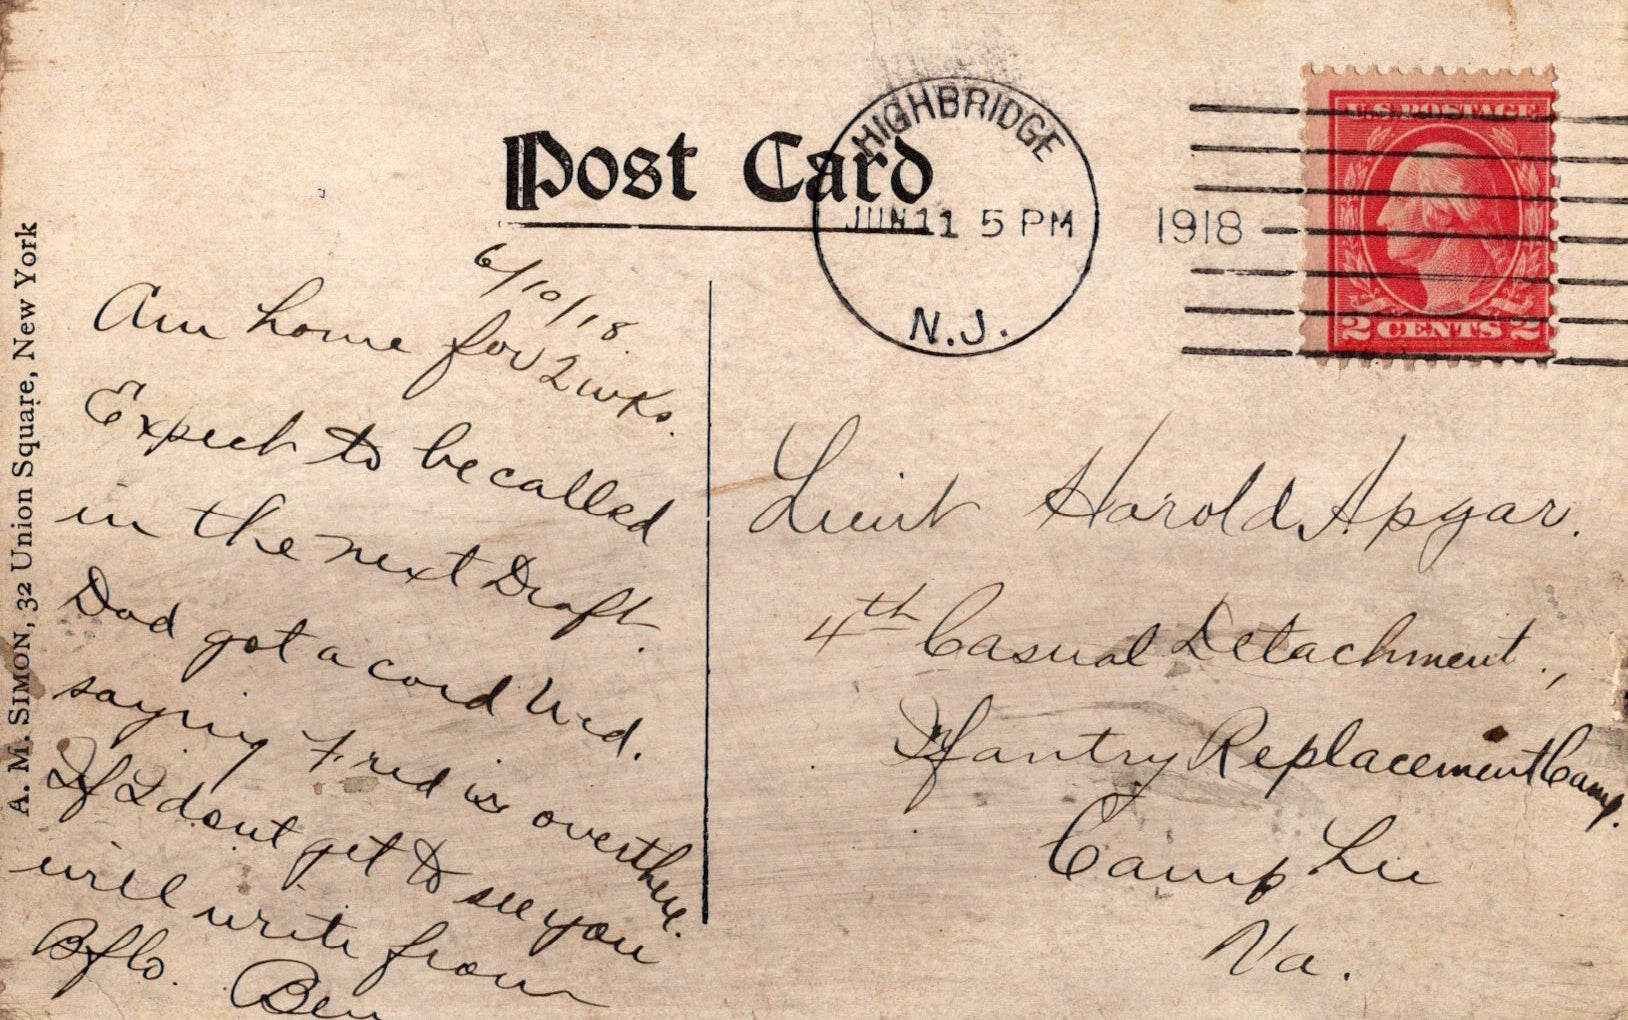 Post Card
HIGHBRIDGE
JUN 11 5 PM
1918
N.J.
U.S. POSTAGE
2 CENTS 2
A. M. SIMON, 32 Union Square, New York
6/10/18.
Am home for 2 wks.
Expect to be called
in the next Draft.
Dad got a card Wed.
saying Fred is over there.
If I dont get to see you
will write from
Bflo. Ben
Lieut Harold Apgar.
4th Casual Detachment,
Infantry Replacement Camp.
Camp Lee
Va.